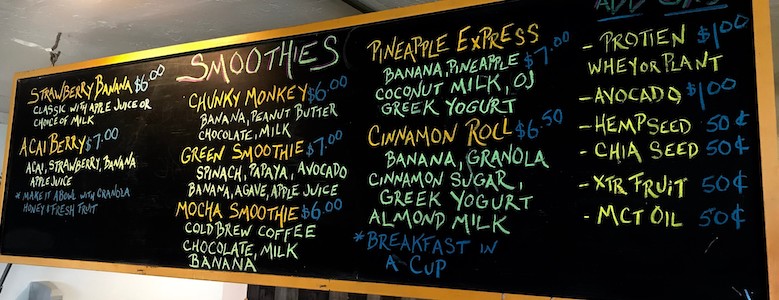 SMOOTHIES
STRAWBERRY BANANA $6.00
CLASSIC WITH APPLE JUICE OR
CHOICE OF MILK
ACAI BERRY $7.00
ACAI, STRAWBERRY, BANANA
APPLE JUICE
* MAKE IT A BOWL WITH GRANOLA
HONEY & FRESH FRUIT
CHUNKY MONKEY $6.00
BANANA, PEANUT BUTTER
CHOCOLATE, MILK
GREEN SMOOTHIE $7.00
SPINACH, PAPAYA, AVOCADO
BANANA, AGAVE, APPLE JUICE
MOCHA SMOOTHIE $6.00
COLD BREW COFFEE
CHOCOLATE, MILK
BANANA
PINEAPPLE EXPRESS $7.00
BANANA, PINEAPPLE
COCONUT MILK, OJ
GREEK YOGURT
CINNAMON ROLL $6.50
BANANA, GRANOLA
CINNAMON SUGAR,
GREEK YOGURT
ALMOND MILK
* BREAKFAST IN
A CUP
ADD ONS
- PROTIEN $1.00
WHEY OR PLANT
- AVOCADO $1.00
- HEMP SEED 50¢
- CHIA SEED 50¢
- XTR FRUIT 50¢
- MCT OIL 50¢